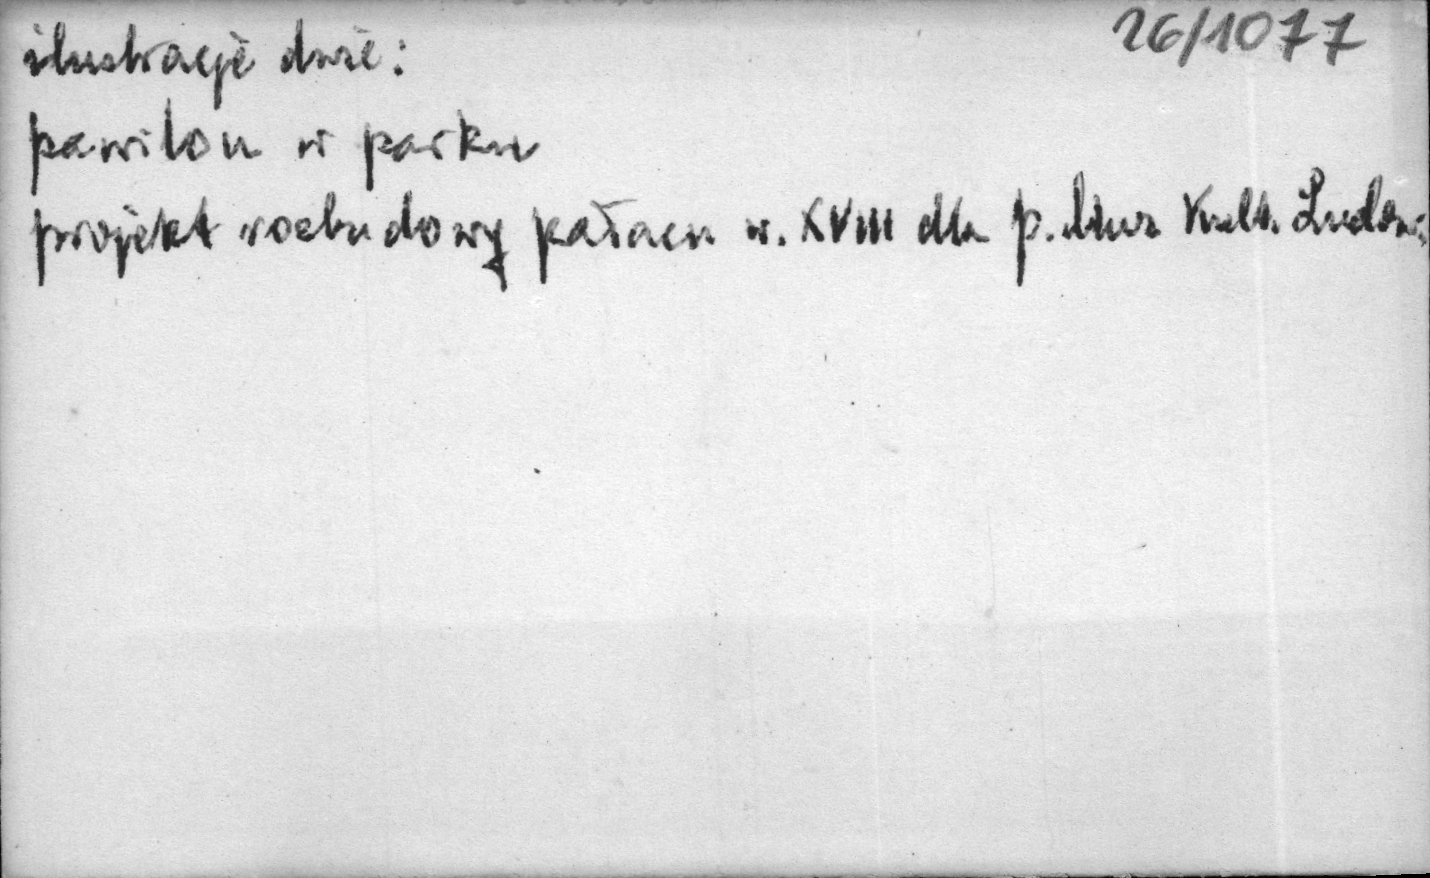 26/1077
ilustracje dwie:
pawilon w parku
projekt rozbudowy pałacu w. XVIII dla p. Kult. Ludow.